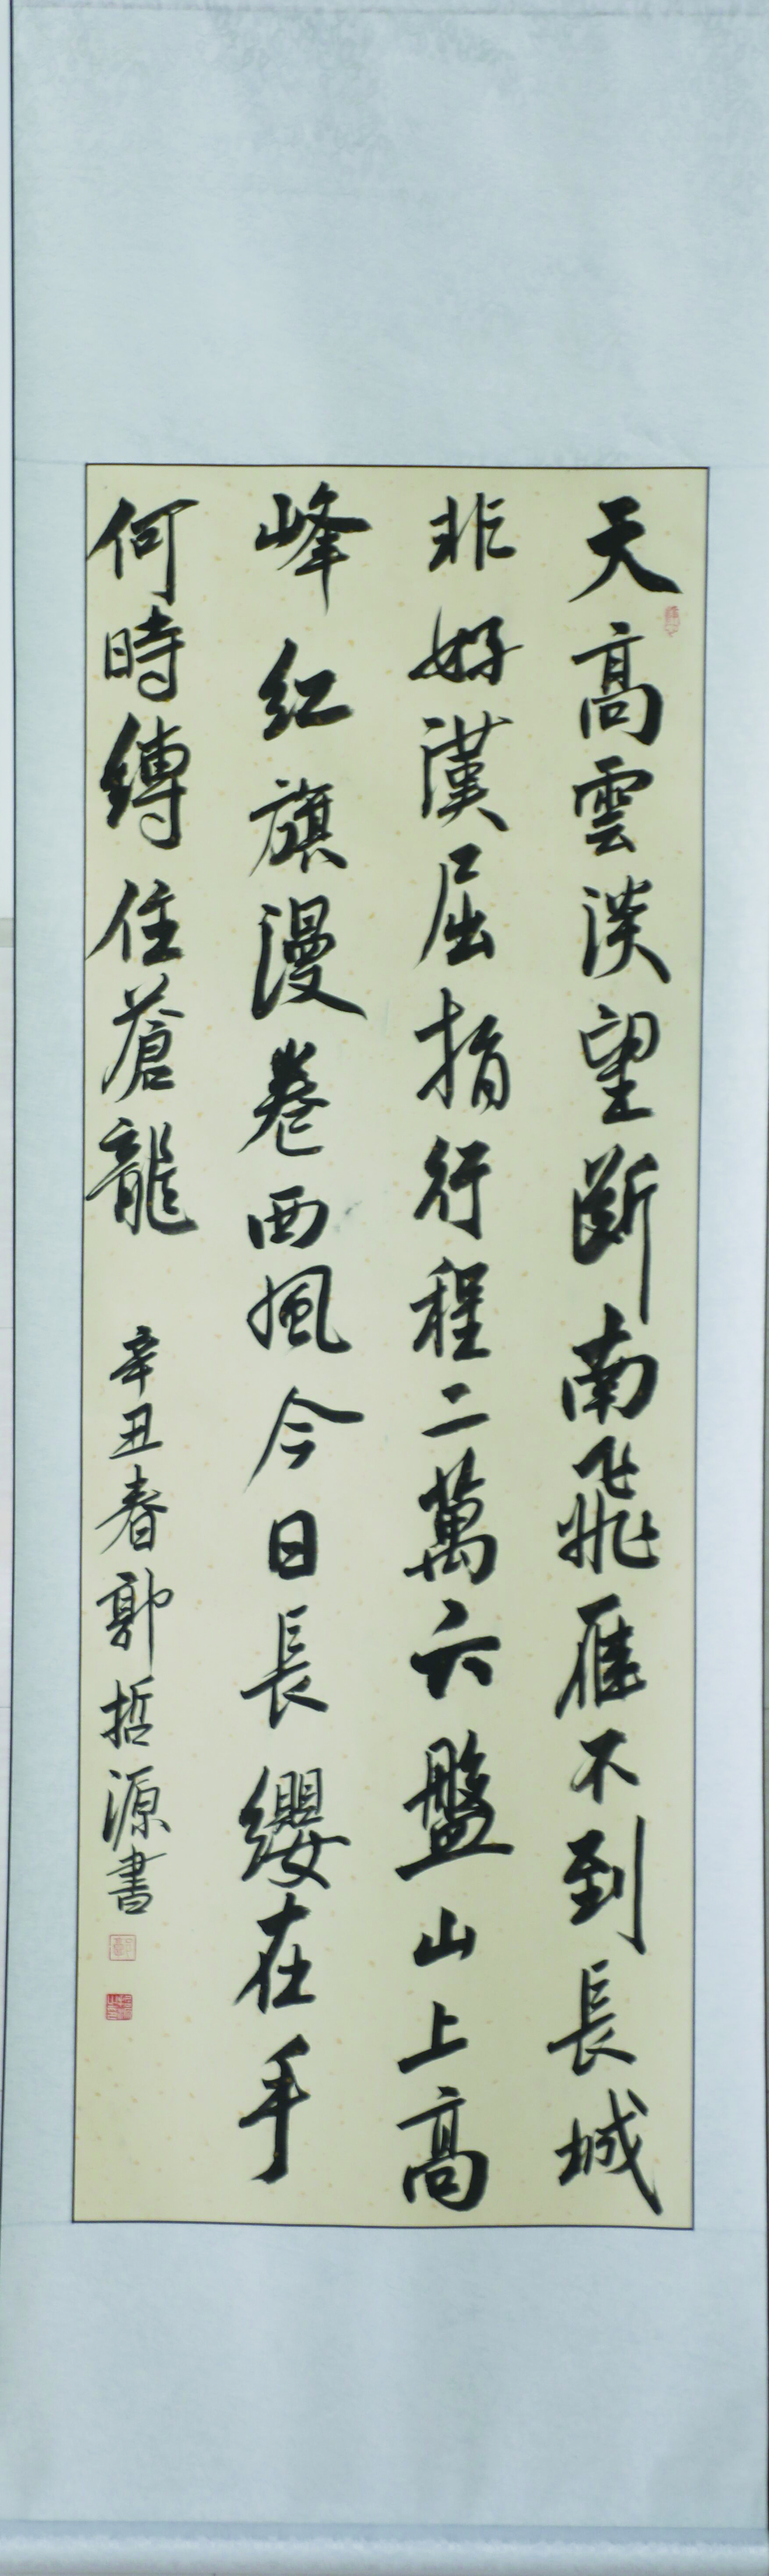 天高雲淡望斷南飛雁不到長城
非好漢屈指行程二萬六盤山上高
峰紅旗漫卷西風今日長纓在手
何時縛住蒼龍
辛丑春郭哲源書